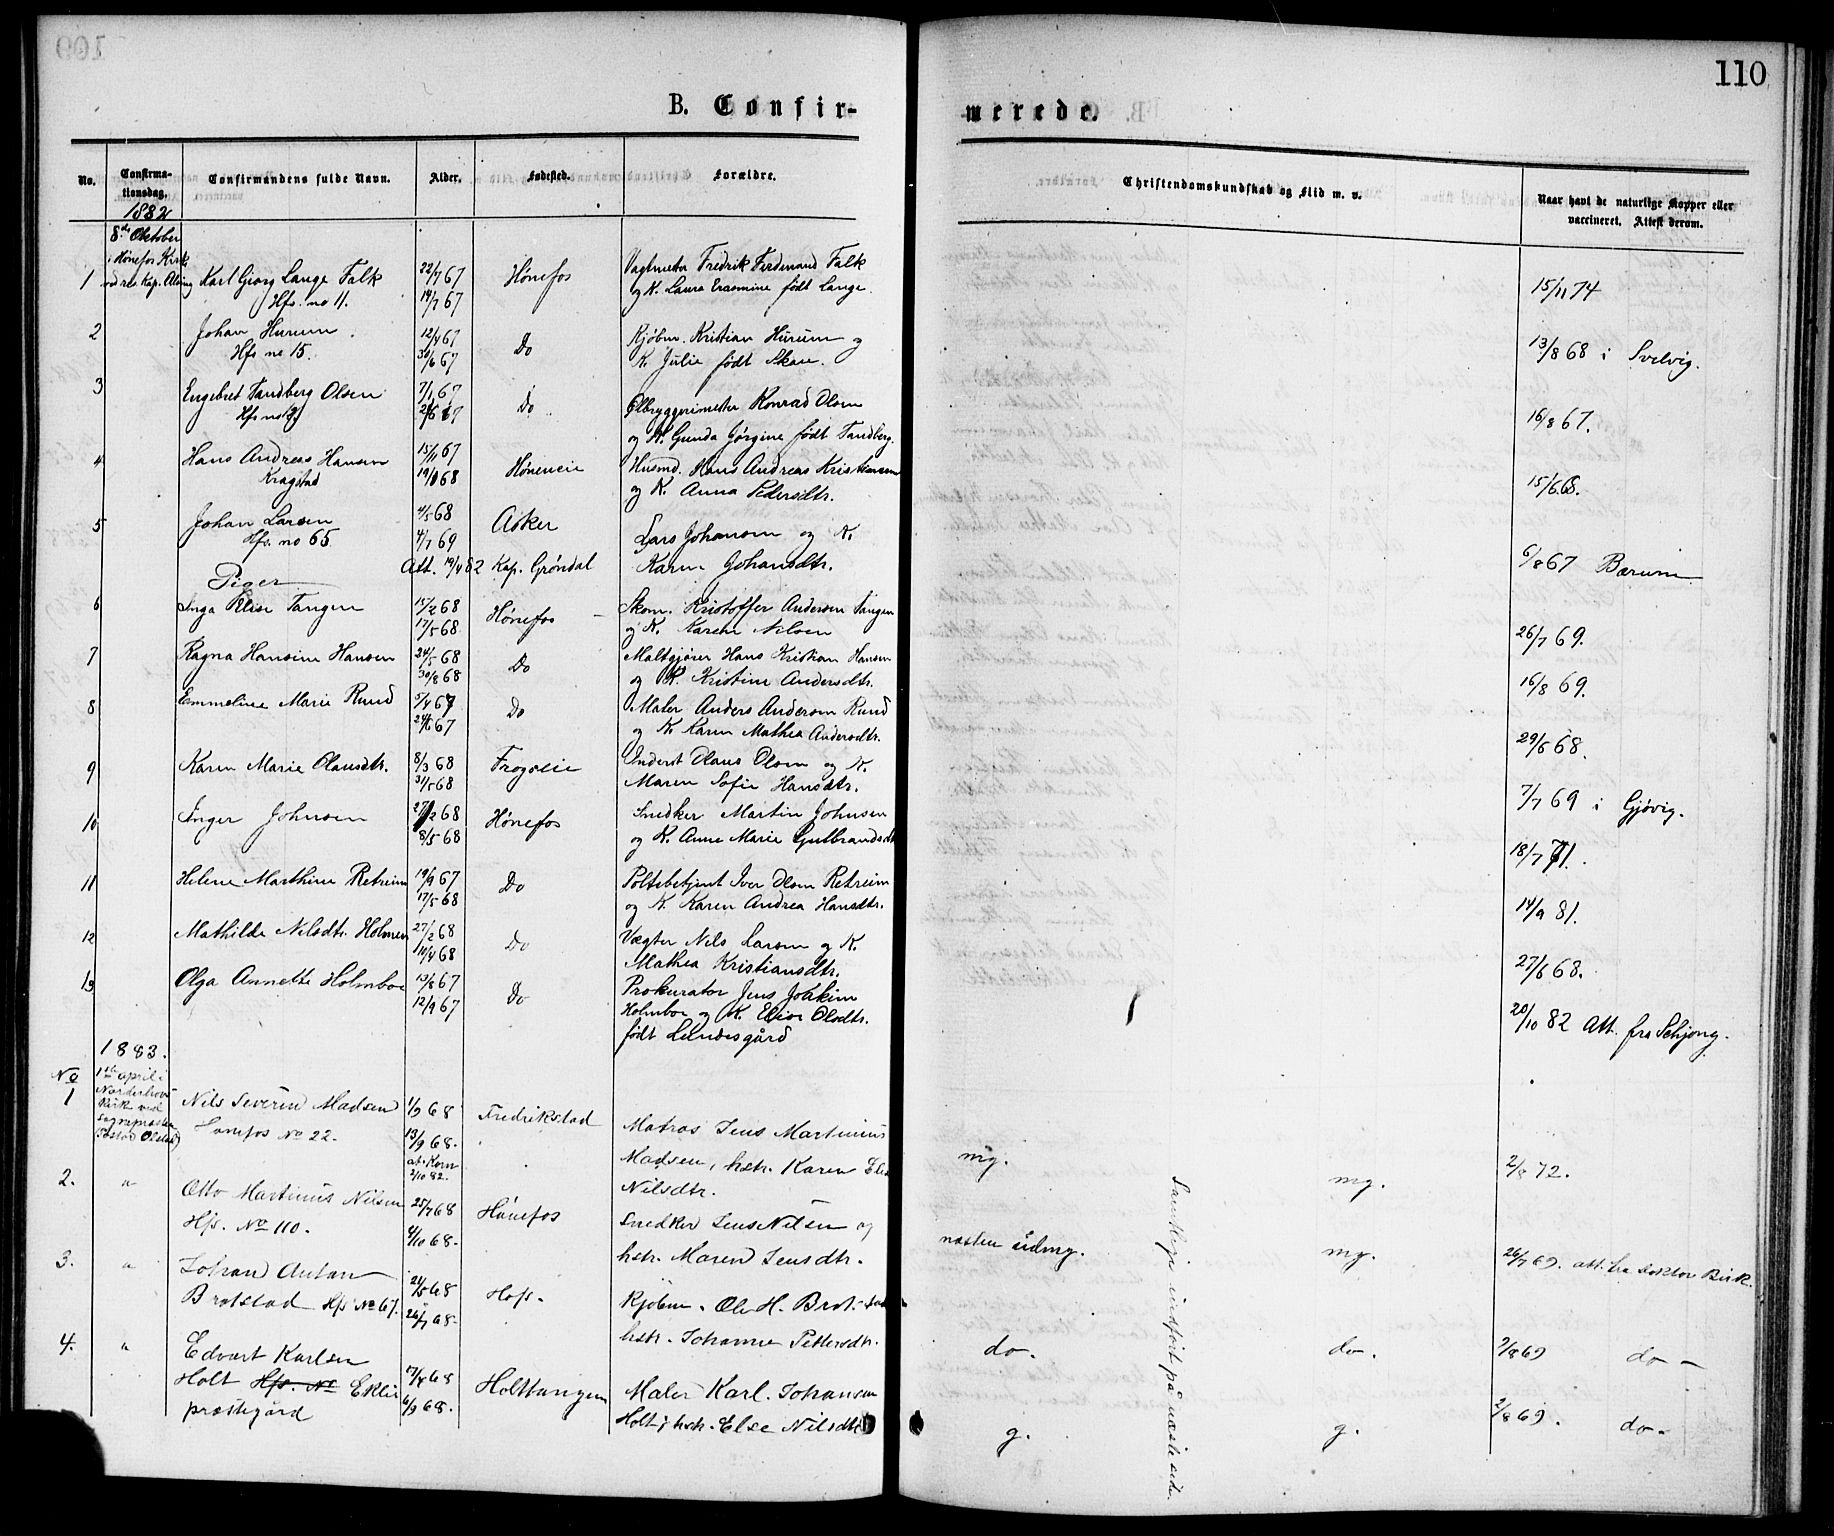 110
B. Confir-
merede.
No.
Confirma-
tionsdag.
1882
Confirmandens fulde Navn.
Alder.
Fødested.
Forældre.
Christendomskundskab og Flid m. v.
Naar havt de naturlige Kopper eller
vaccineret. Attest derom.
8de Oktober
i Hønefos Kirke
ved res. Kap.
1 Karl Georg Lange Falk 22/7 67 Hønefos Vagtmester Fredrik Ferdinand Falk
Hfs. no 11. 14/7 67 og K. Laura Erasmine født Lange. 15/11 74
2 Johan Hurum. 12/4 67 Do Kjøbm. Kristian Hurum og
Hfs no 15. 30/6 67 K. Julie født Skau. 13/8 68 i Svelvig.
3 Engebret Tandberg Olsen 7/1 67 Do Ølbryggerimester Konrad Olsen
Hfs no og K. Gunda Jørgine født Tandberg. 16/8 67.
4 Hans Andreas Hansen 15/11 67 Høneneie Husmd. Hans Andreas Kristiansen
Kragstad 19/1 68 og K. Anna Pedersdtr. 15/6 68.
5 Johan Larsen 4/5 68 Asker Lars Johansen og K.
Hfs. no 65. 4/7 69 Karen Johansdtr.
Att. 19/4 82 Kap. Grøndal 6/8 67 Bærum
Piger
6 Inga Elise Tangen 15/2 68 Hønefos Skom. Kristoffer Andersen Tangen
17/5 68 og K. Karen Nilsen 26/7 69.
7 Ragna Hansine Hansen 24/5 68 Do Maltgjører Hans Kristian Hansen
30/8 68 og K. Kristine Andersdtr. 16/8 69.
8 Emmeline Marie Rund 5/4 67 Do Maler Anders Andersen Rund
67 og K. Karen Mathea Andersdtr. 29/6 68.
9 Karen Marie Olausdtr. 8/3 68 Frogseie Inderst Olaus Olsen og K.
31/5 68 Maren Sofie Hansdtr. 7/7 69 i Gjøvig.
10 Inger Johnsen 27/2 68 Hønefos Snedker Martin Johnsen
8/5 68 og K. Anne Marie Gulbrandsdt 18/7 71.
11 Helene Marthine Retreim 19/9 67 Do Politibetjent Iver Olsen Retreim
17/5 68 og K. Karen Andrea Hansdtr. 14/9 81.
12 Mathilde Nilsdtr. Holmen 27/2 68 Do Vægter Nils Larsen og K.
14/4 68 Mathea Kristiansdtr. 27/6 68.
13 Olga Annette Holmboe 13/6 67 Do Prokurator Jens Joakim
12/9 67 Holmboe og K. Elise Olsdtr.
født Lundesgård 20/10 82 Att. fra Schjong.
1883.
No 1ste april i
Norderhovs
Kirk ved
sogneprest
1 Nils Severin Madsen 1/9 68 Fredrikstad Matros Jens Martinius
Hønefos No 22. 13/9 68. Madsen, hstr. Karen Elis
at. Korn
2/10 82. Nilsdtr. mg. mg. 2/8 72.
2. " Otto Martinius Nilsen 25/7 68 Hønefos Snedker Jens Nilsen og
Hfs. No 110. 4/10 68. hstr. Maren Jensdtr. næsten udmg. mg. 26/7 69. att. fra doktor Birk.
3. " Johan Anton 24/5 68 Hofs. Kjøbm. Ole H. Brot-stad
Brotstad Hfs No 67. 26/7 68. hstr. Johanne Pettersdtr. do. do. 2/8 69 do -
4. " Edvart Karlsen
Holt Hfs. No Eklie 17/8 68 Holttangen Maler Karl Johansen
præstegård 6/9 68. Holt, hstr. Else Nilsdtr g. g. 2/8 69. do -
indført på næste side.